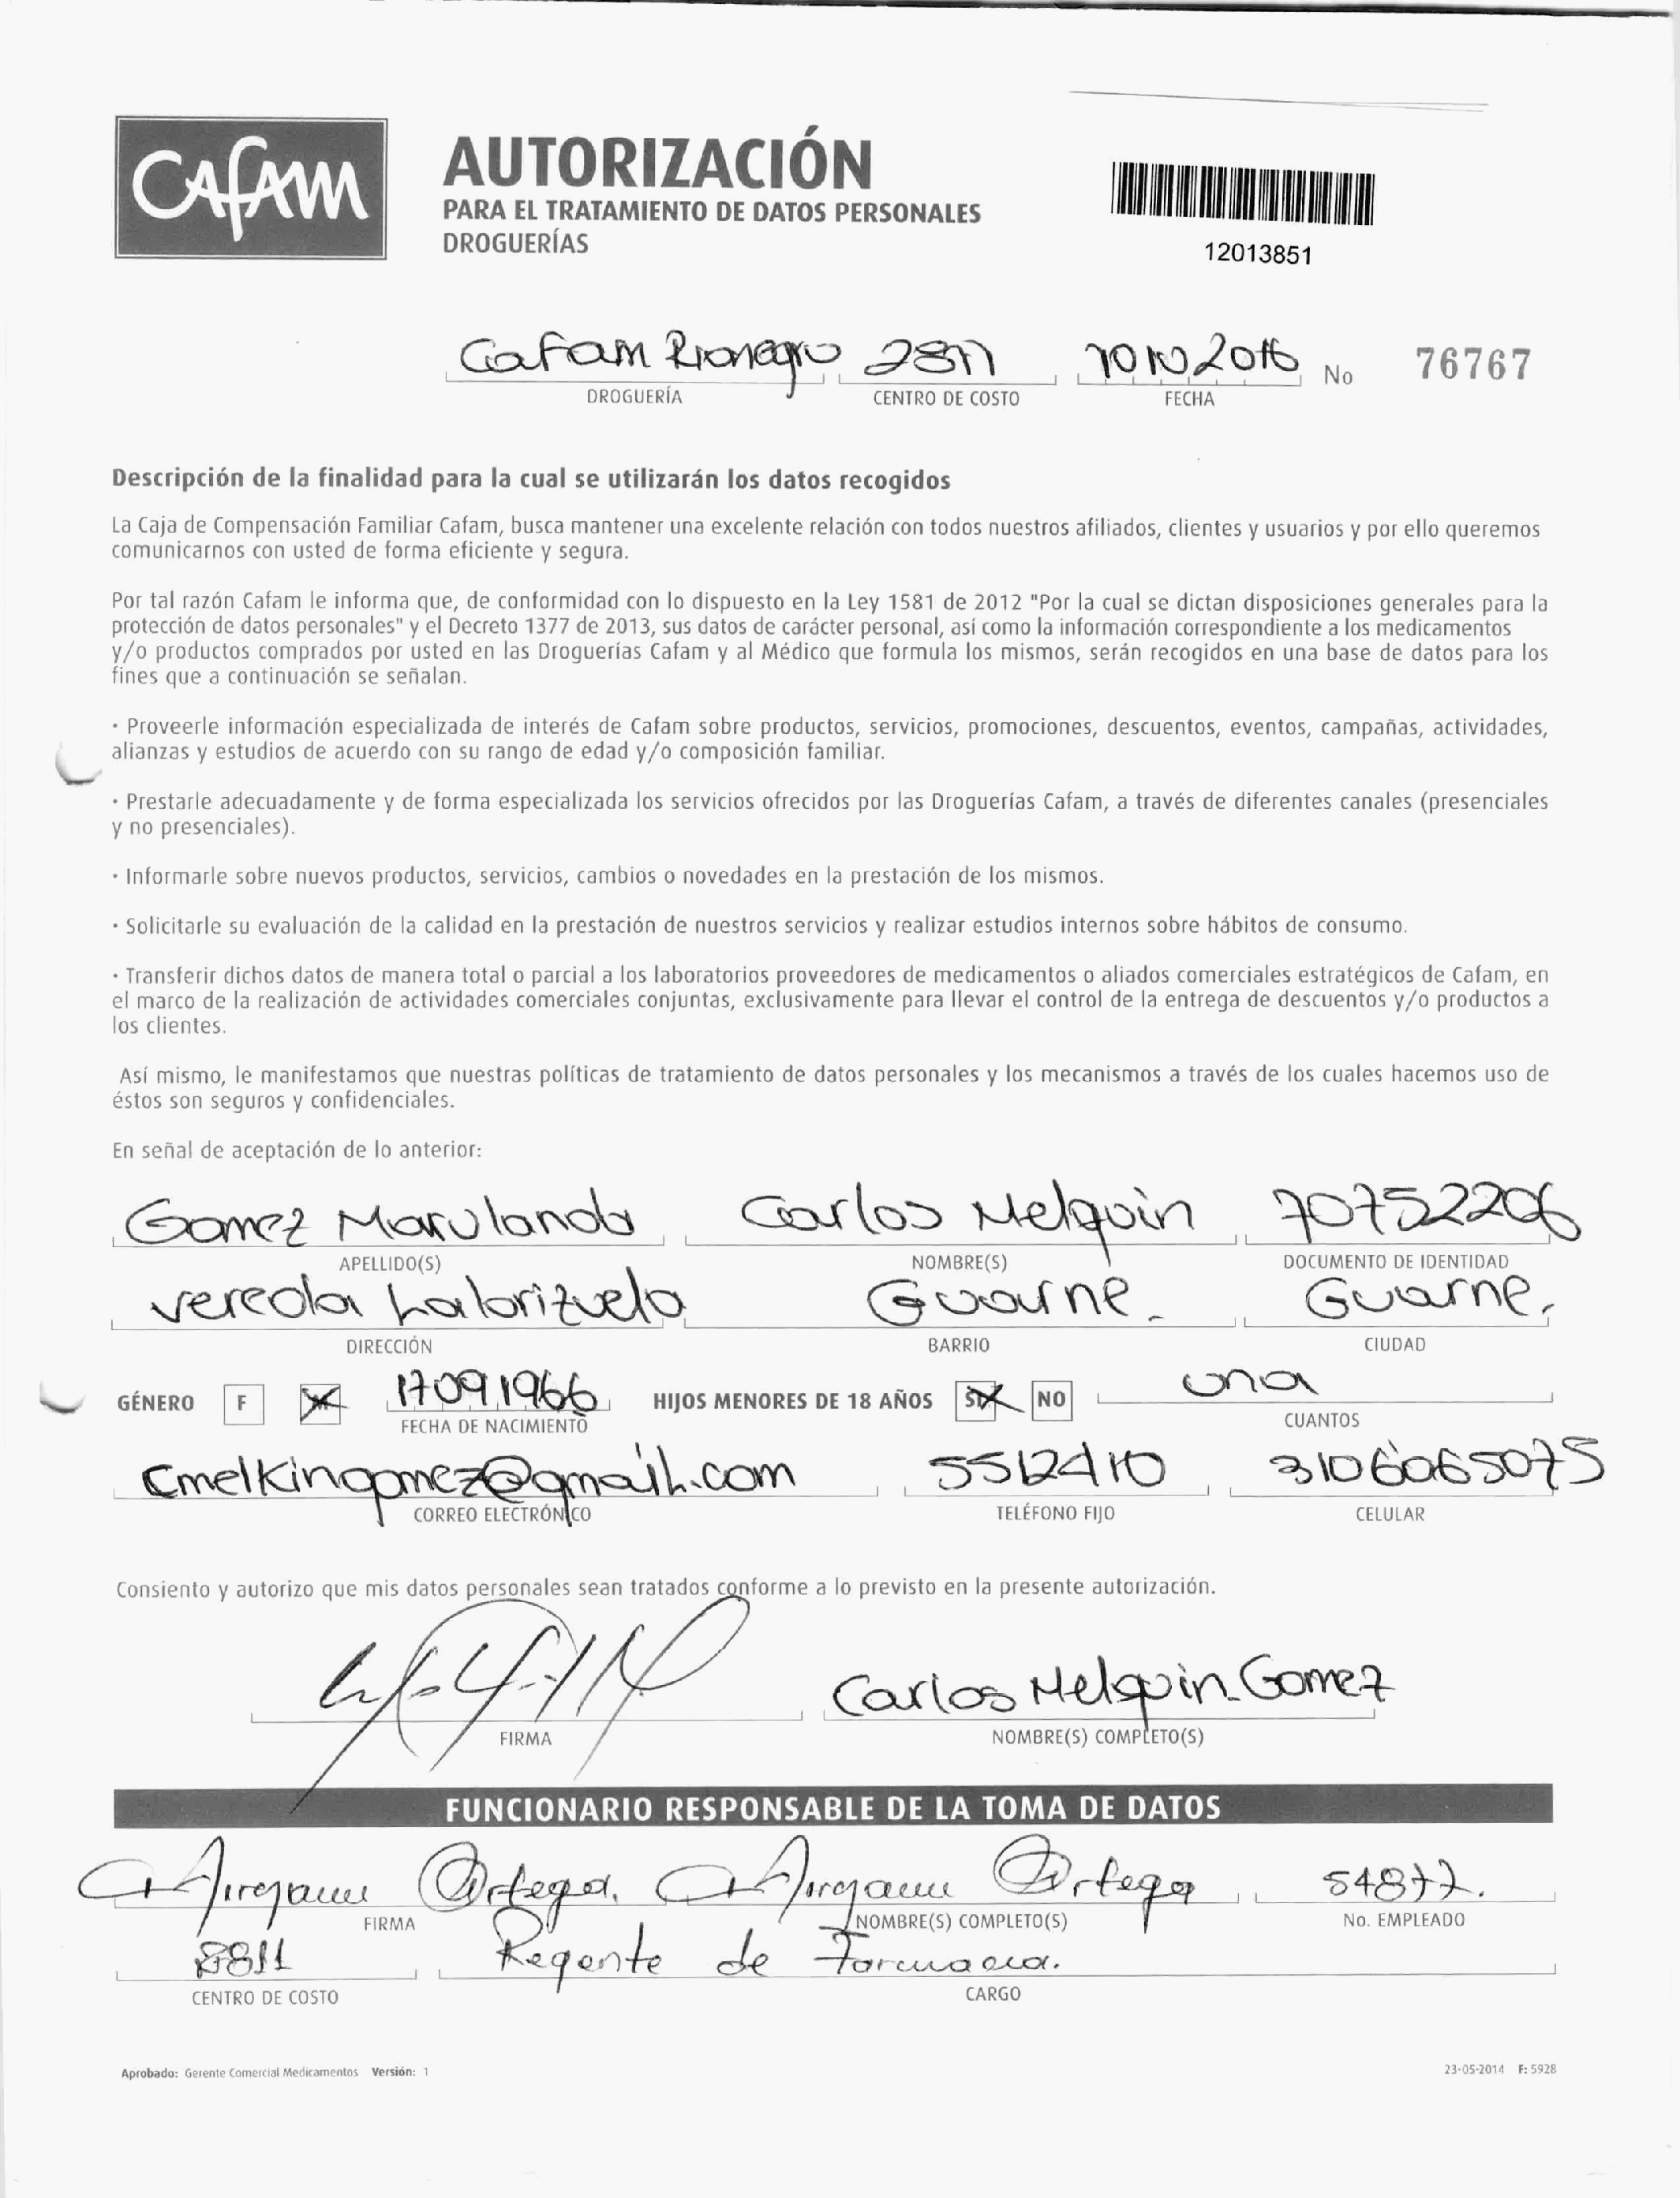 CAFAM
AUTORIZACIÓN
PARA EL TRATAMIENTO DE DATOS PERSONALES
DROGUERÍAS
12013851
Cafam Rionegro
DROGUERÍA CENTRO DE COSTO FECHA
No 76767
Descripción de la finalidad para la cual se utilizarán los datos recogidos
La Caja de Compensación Familiar Cafam, busca mantener una excelente relación con todos nuestros afiliados, clientes y usuarios y por ello queremos
comunicarnos con usted de forma eficiente y segura.
Por tal razón Cafam le informa que, de conformidad con lo dispuesto en la Ley 1581 de 2012 "Por la cual se dictan disposiciones generales para la
protección de datos personales" y el Decreto 1377 de 2013, sus datos de carácter personal, así como la información correspondiente a los medicamentos
y/o productos comprados por usted en las Droguerías Cafam y al Médico que formula los mismos, serán recogidos en una base de datos para los
fines que a continuación se señalan.
· Proveerle información especializada de interés de Cafam sobre productos, servicios, promociones, descuentos, eventos, campañas, actividades,
alianzas y estudios de acuerdo con su rango de edad y/o composición familiar.
· Prestarle adecuadamente y de forma especializada los servicios ofrecidos por las Droguerías Cafam, a través de diferentes canales (presenciales
y no presenciales).
· Informarle sobre nuevos productos, servicios, cambios o novedades en la prestación de los mismos.
· Solicitarle su evaluación de la calidad en la prestación de nuestros servicios y realizar estudios internos sobre hábitos de consumo.
· Transferir dichos datos de manera total o parcial a los laboratorios proveedores de medicamentos o aliados comerciales estratégicos de Cafam, en
el marco de la realización de actividades comerciales conjuntas, exclusivamente para llevar el control de la entrega de descuentos y/o productos a
los clientes.
Así mismo, le manifestamos que nuestras políticas de tratamiento de datos personales y los mecanismos a través de los cuales hacemos uso de
éstos son seguros y confidenciales.
En señal de aceptación de lo anterior:
Gomez Marulanda Carlos Melquin 70752206
APELLIDO(S) NOMBRE(S) DOCUMENTO DE IDENTIDAD
vereda Guarne. Guarne.
DIRECCIÓN BARRIO CIUDAD
GÉNERO F 17091966 HIJOS MENORES DE 18 AÑOS SI NO una
FECHA DE NACIMIENTO CUANTOS
cmelkingomez@gmail.com 5512410 3106065075
CORREO ELECTRÓNICO TELÉFONO FIJO CELULAR
Consiento y autorizo que mis datos personales sean tratados conforme a lo previsto en la presente autorización.
Carlos Melquin Gomez
FIRMA NOMBRE(S) COMPLETO(S)
FUNCIONARIO RESPONSABLE DE LA TOMA DE DATOS
Ortega. Ortega 54877.
FIRMA NOMBRE(S) COMPLETO(S) No. EMPLEADO
Regente de Farmacia.
CENTRO DE COSTO CARGO
Aprobado: Gerente Comercial Medicamentos Versión: 1 23-05-2014 F: 5928